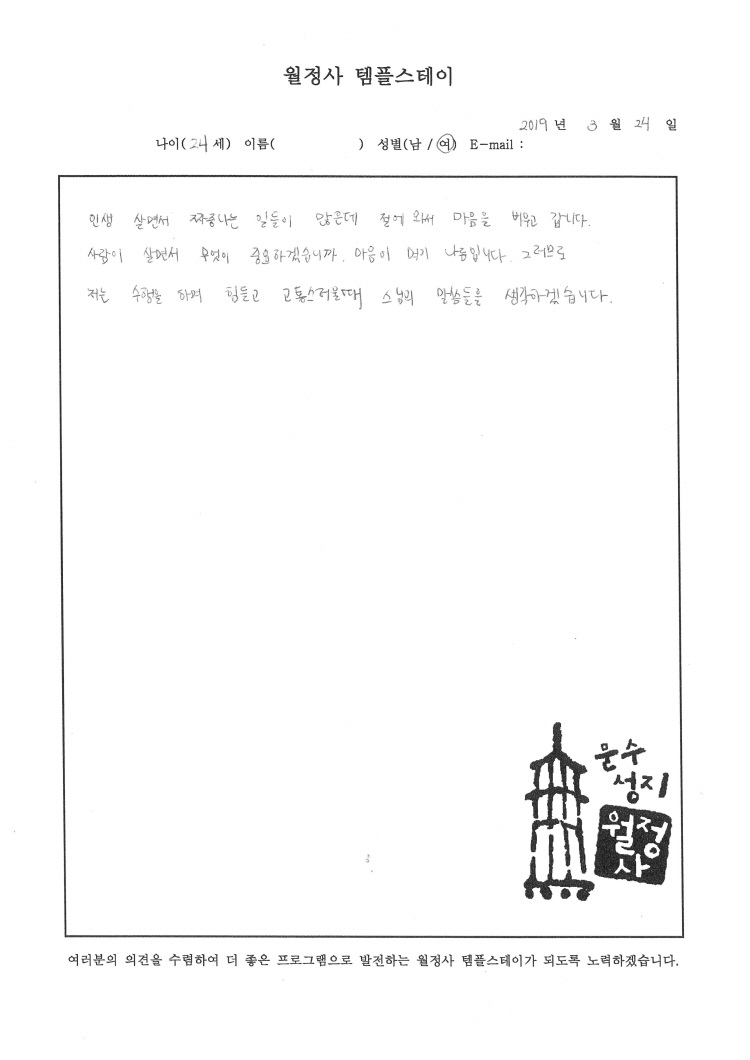 월정사 템플스테이
2019 년 3 월 24 일
나이( 24 세) 이름( ) 성별(남 / 여) E-mail :
인생 살면서 짜증나는 일들이 많은데 절에 와서 마음을 비우고 갑니다.
사람이 살면서 무엇이 중요하겠습니까. 마음이 먹기 나름입니다. 그러므로
저는 수행을 하며 힘들고 고통스러울때 스님의 말씀들을 생각하겠습니다.
문수
성지
월정
사
여러분의 의견을 수렴하여 더 좋은 프로그램으로 발전하는 월정사 템플스테이가 되도록 노력하겠습니다.